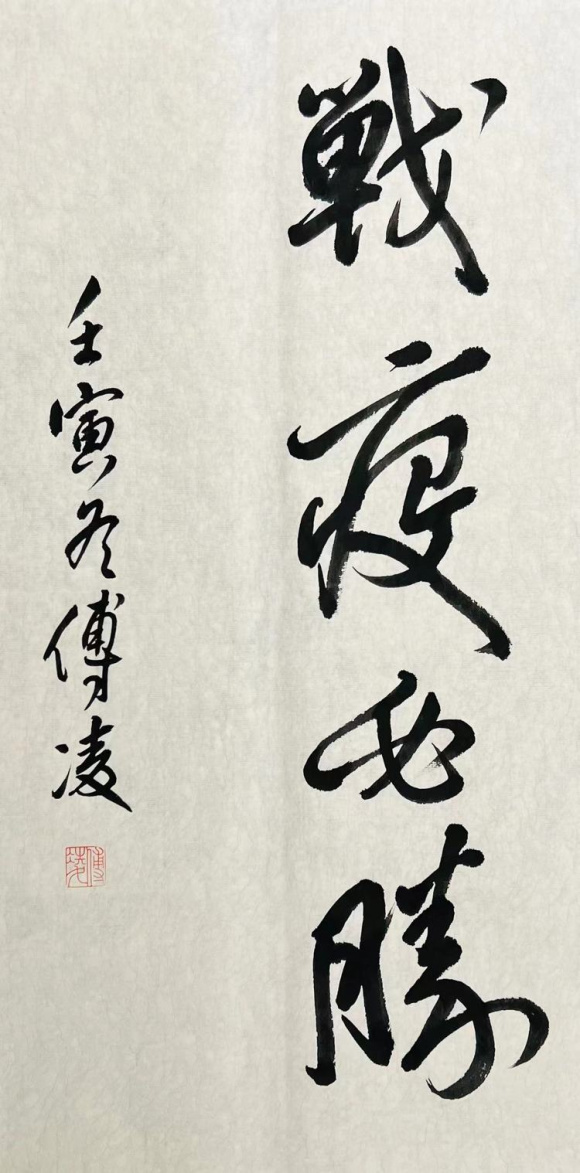 戰疫必勝
壬寅冬傅凌
傅凌